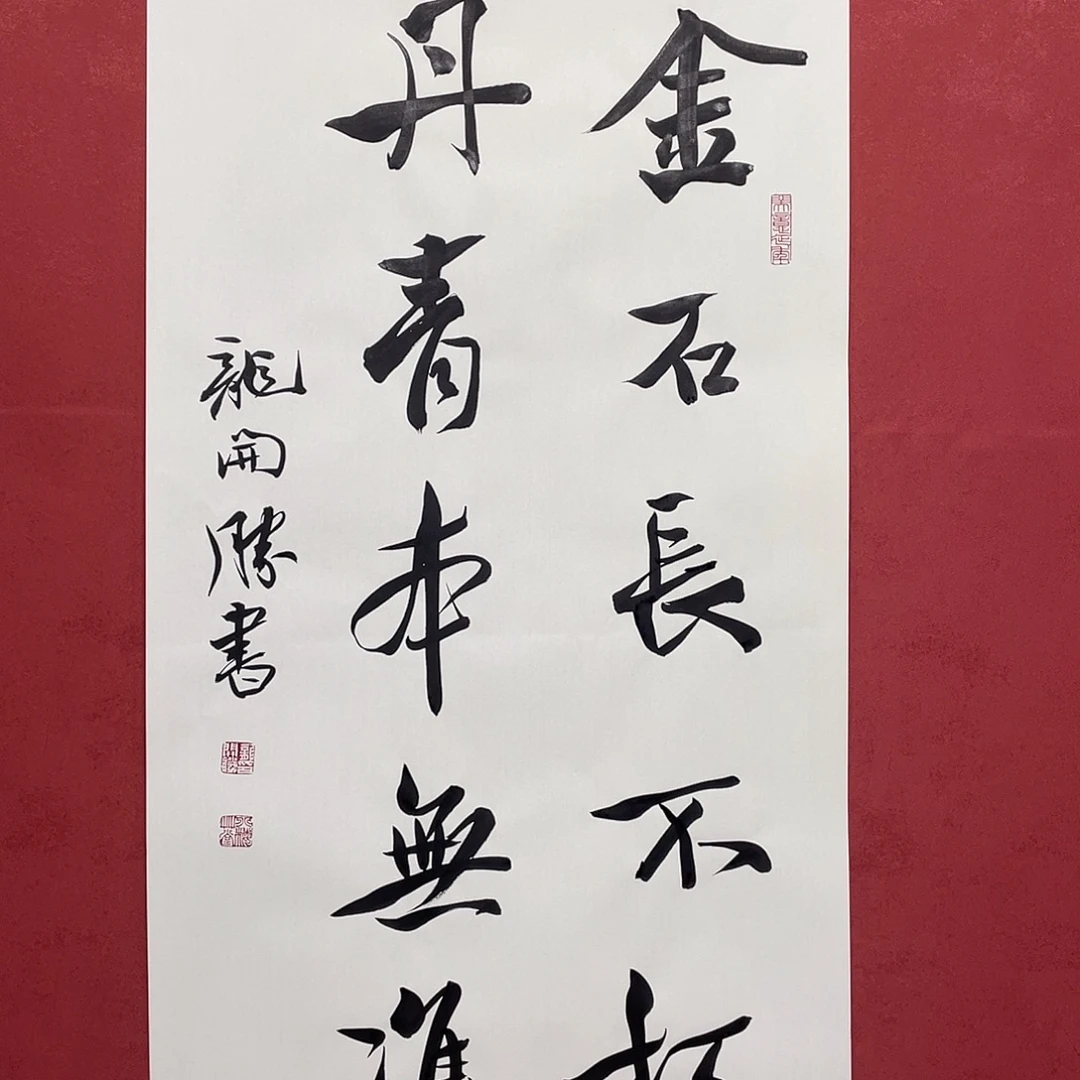 金石長不
丹青本無
龍開勝書